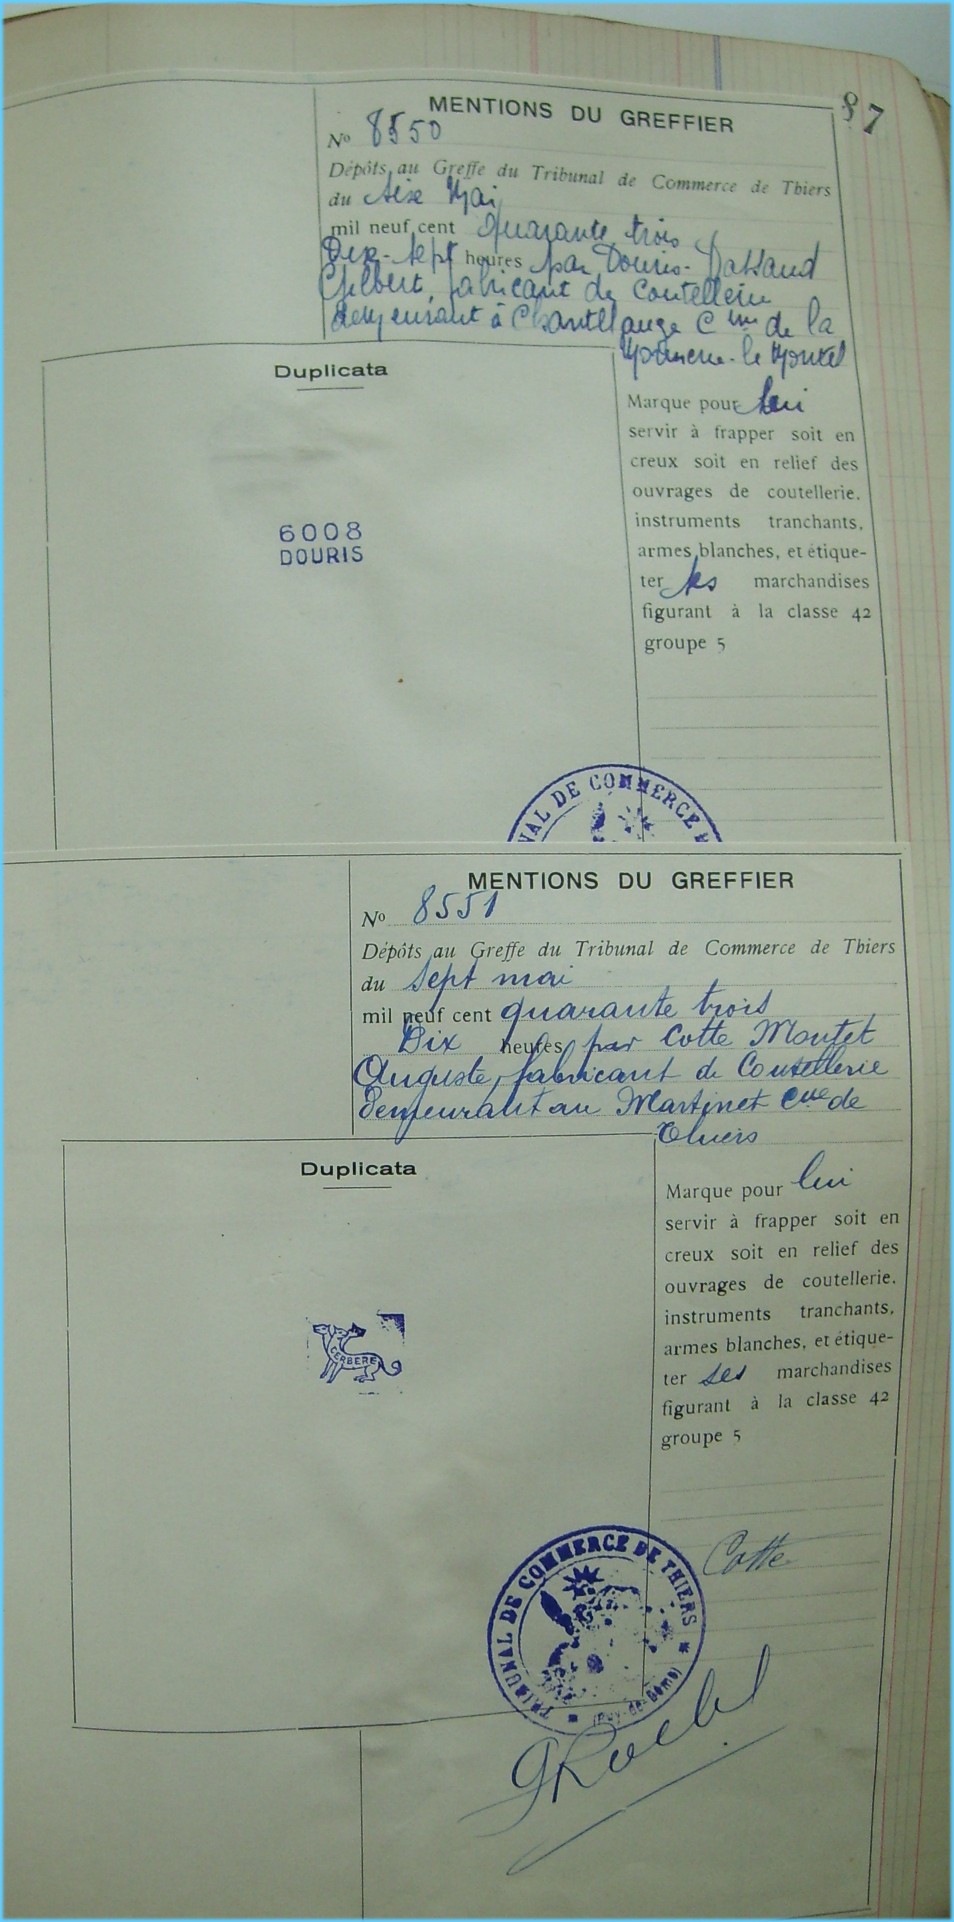 87
MENTIONS DU GREFFIER
No 8550
Dépôts au Greffe du Tribunal de Commerce de Thiers
du Mai
mil neuf cent quarante trois
Dix-sept heures par Douris-
Gilbert, fabricant de Coutellerie
demeurant à Cne de la
Duplicata
6008
DOURIS
Marque pour lui
servir à frapper soit en
creux soit en relief des
ouvrages de coutellerie,
instruments tranchants,
armes blanches, et étique-
ter ses marchandises
figurant à la classe 42
groupe 5
NAL DE COMMERCE
MENTIONS DU GREFFIER
No 8551
Dépôts au Greffe du Tribunal de Commerce de Thiers
du Sept mai
mil neuf cent quarante trois
Dix heures par Cotte Montet
Auguste, fabricant de Coutellerie
demeurant au Martinet Cne de
Thiers
Duplicata
CERBERE
Marque pour lui
servir à frapper soit en
creux soit en relief des
ouvrages de coutellerie,
instruments tranchants,
armes blanches, et étique-
ter ses marchandises
figurant à la classe 42
groupe 5
Cotte
TRIBUNAL DE COMMERCE DE THIERS
(Puy-de-Dôme)